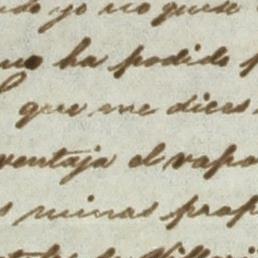 yo no quise
no ha podido
que me dices
ventaja el vapo
s minas prop